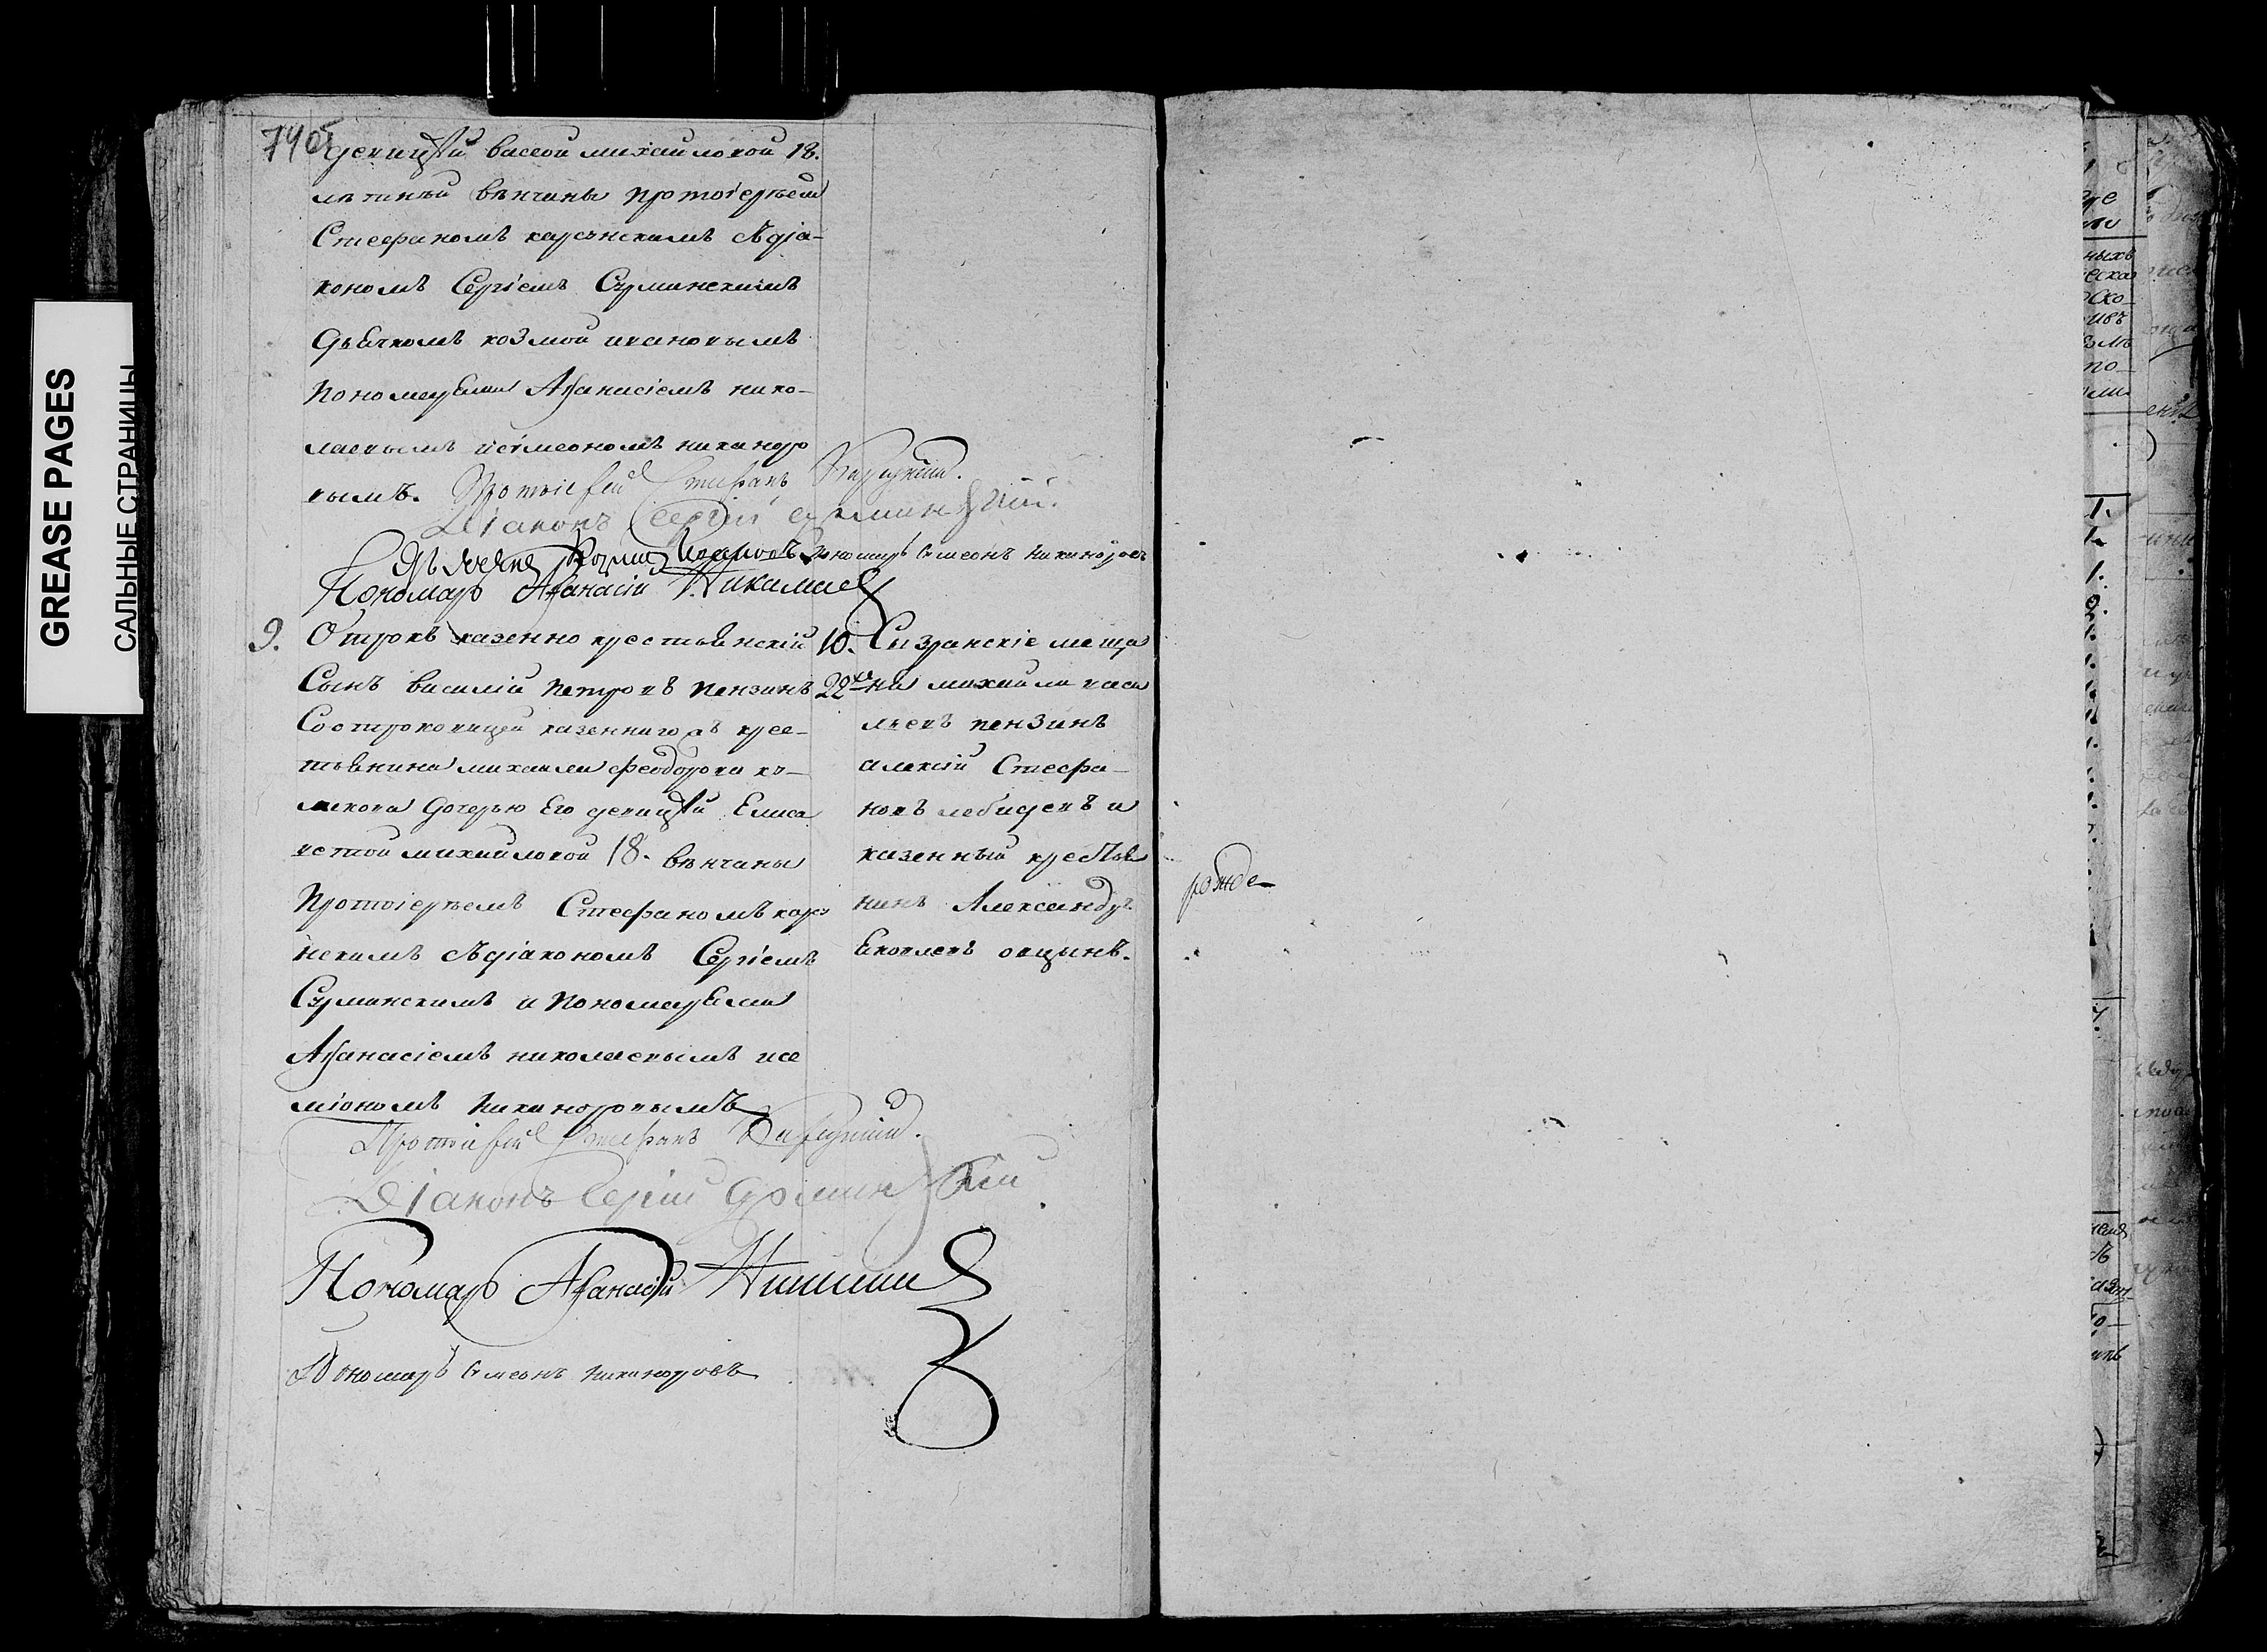 GREASE PAGES
САЛЬНЫЕ СТРАНИЦЫ
740
девицей васеой михайловой 18.
летней венчаны протоіереем
Стефаномъ карсунскимъ Діа-
кономъ Сергіемъ Сурминскимъ
Дьячкомъ козмой ивановымъ
Пономарями Афанасіемъ нико-
лаевымъ и сімеономъ никаноро
вымъ. Протоіерей Стефанъ
Діаконъ Сергій Сурминскій.
Дьячекъ Козма Ивановъ Пономарь Симеонъ Никаноровъ
Пономарь Афанасій Николаев
9. Отрокъ казенно крестьянскій
Сынъ василій петровъ пензинъ
Со отроковицей казеннаго крес-
тьянина михаила феодорова
дочерью Его девицей Елиса
ветой михайловой 18. венчаны
Протоіереемъ Стефаномъ карсу
нскимъ Діакономъ Сергіемъ
Сурминскимъ и Пономарями
Афанасіемъ николаевымъ и се
міономъ Никаноровымъ
Протоіерей Стефанъ
Діаконъ Сергій Сурминскій
Пономарь Афанасій
Пономарь Симеонъ Никаноровъ
10.
22
Сызранскіе меща
не михаила васи
льевъ пензинъ
алексій Стефа-
новъ лебедевъ и
казенный крестья
нинъ Александръ
Яковлевъ овцынъ.
рожде-